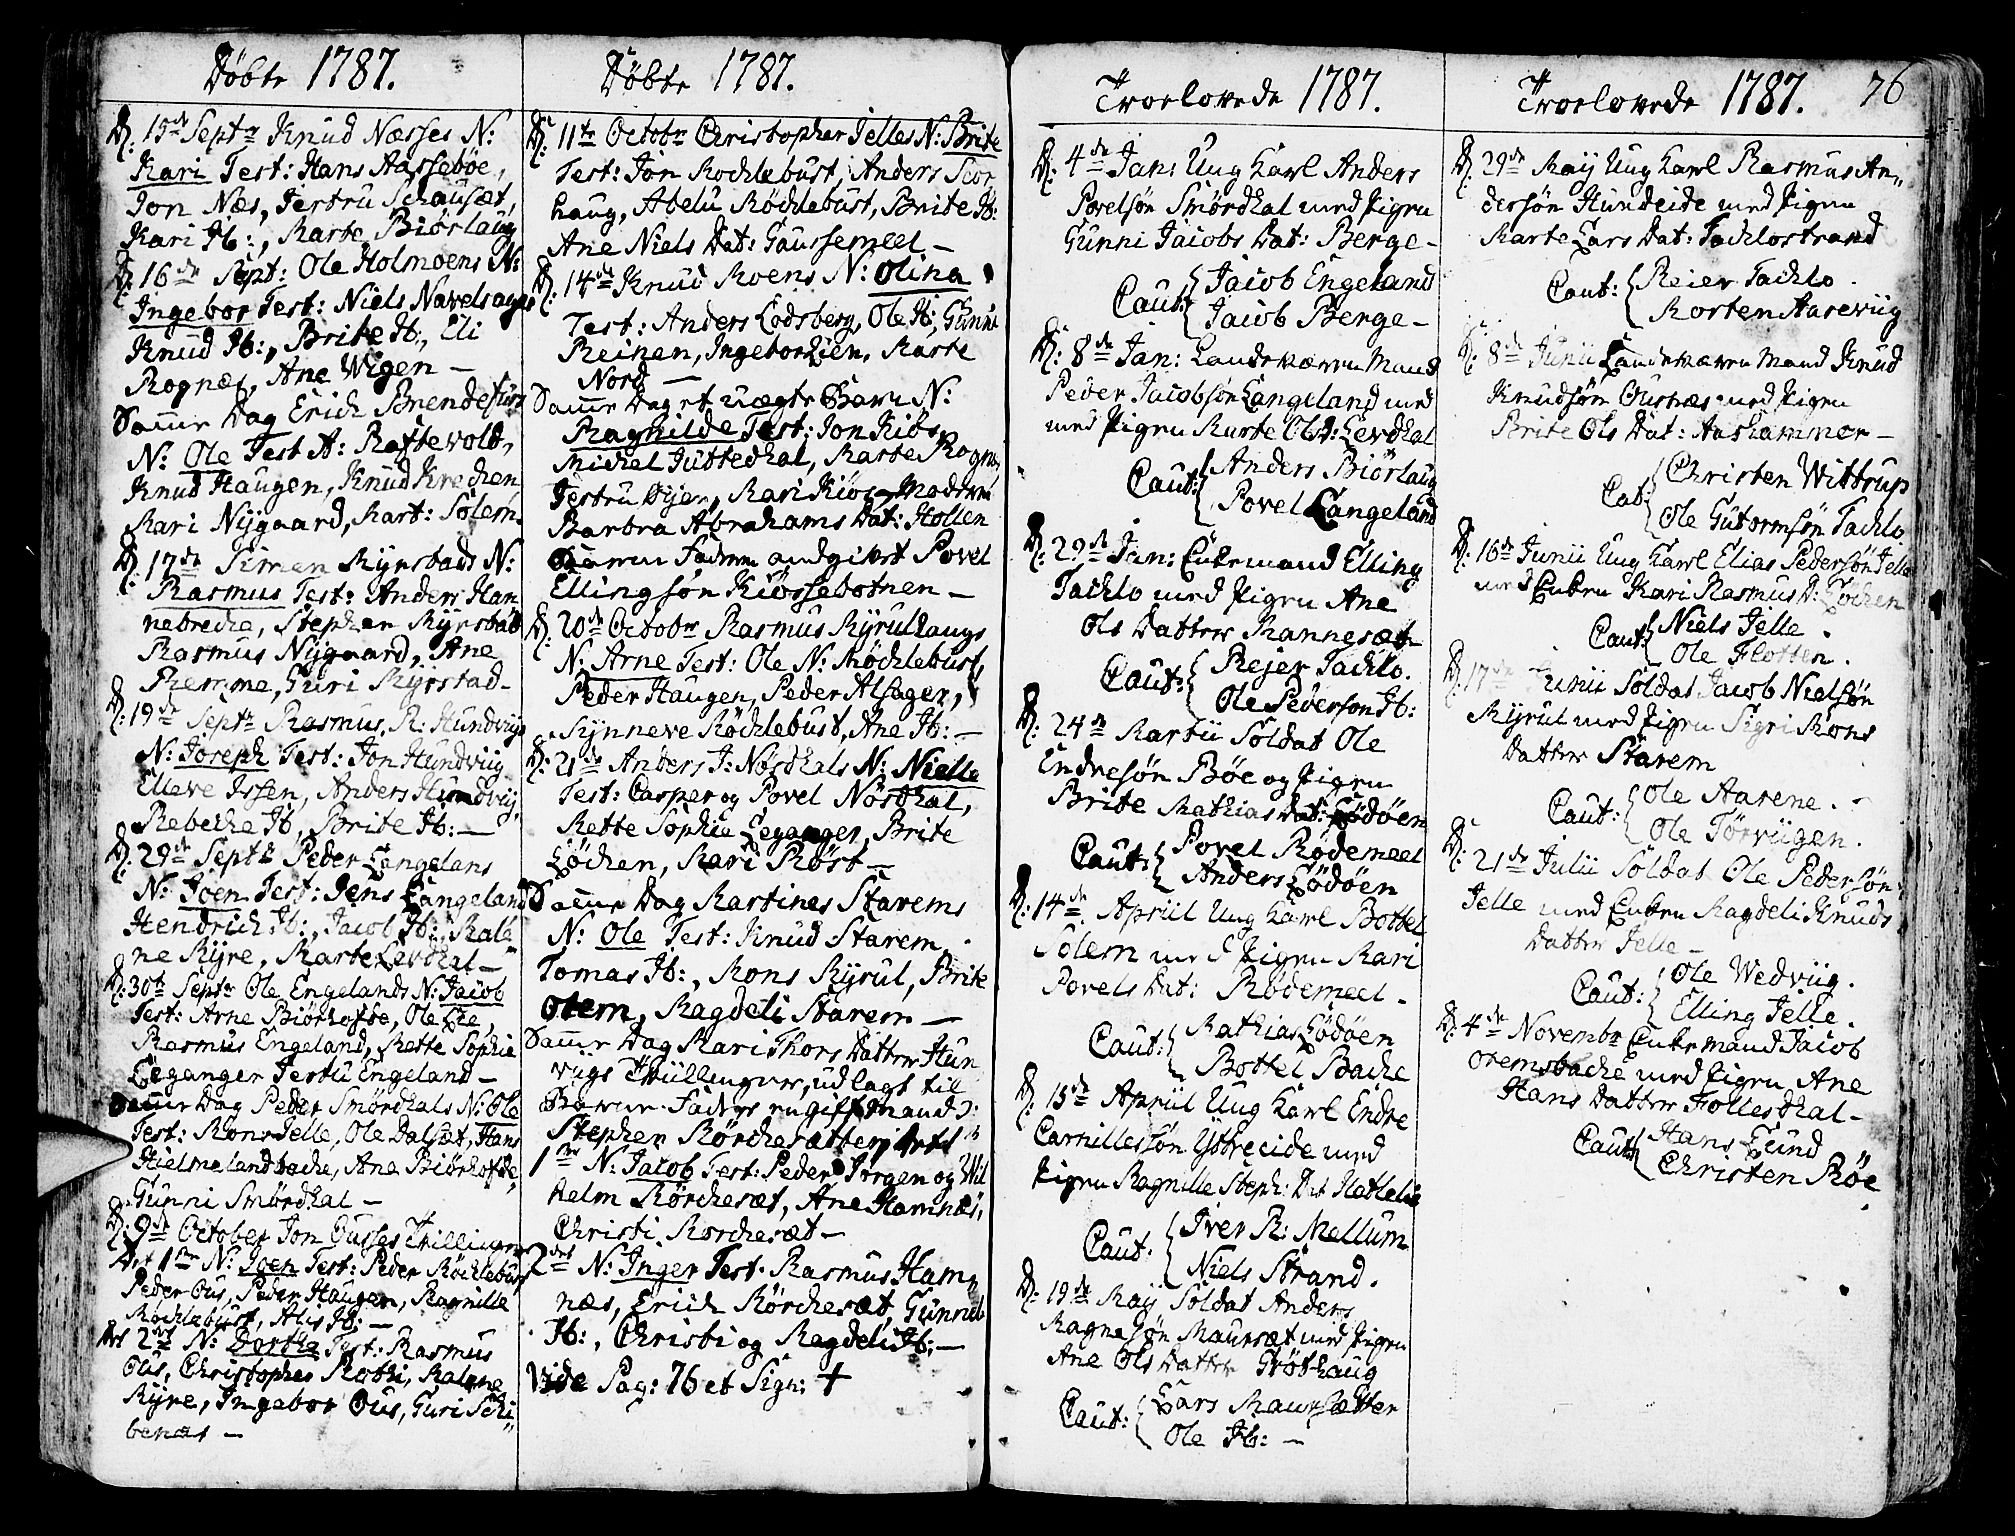 Døbte 1787.
D: 15de Septr Knud Næsses N:
Kari Test: Hans Aassebøe,
Jon Næs, Jertru Schausæt,
Kari Ib:, Marte Biørlaug
D: 16de Sept: Ole Holmoens N:
Ingebor Test: Niels Navelsager
Knud Ib:, Brite Ib:, Eli
Rognæs, Ane Wigen —
Samme Dag Erich Brendefurs
N: Ole Test A: Raftevold,
Knud Haugen, Knud Krechen
Mari Nygaard, Mart: Solem.
D: 17de Simen Myrstads N:
Rasmus Test: Anders Han
nebreche, Stephen Myrstad
Rasmus Nygaard, Ane
Remme, Guri Myrstad-
D: 19de Septr Rasmus R: Hundvigs
N: Joseph Test: Jon Hundviig
Elleve Issen, Anders Hundviig,
Rebecke Ib, Brite Ib: —
D: 29de Septr Peder Langelans
N: Joen Test: Jens Langeland
Hendrich Ib:, Jacob Ib:, Male
ne Myre, Marte Levdhal —
D: 30te Septr Ole Engelands N: Jacob
Test: Arne Biørhofde, Ole Lie,
Rasmus Engeland, Mette Sophie
Leganger Jertru Engeland —
Samme Dag Peder Smørdhals N: Ole
Test: Mons Jelle, Ole Dalsæt, Hans
Hielmelandbache, Ane Biørhofde,
Gunni Smørdhal —
D: 9de October Jon Ousses Tvillinger
Det 1ste N: Joen Test: Peder Røchlebust
Peder Ous, Peder Haugen, Magnille
Rochlebust, Alis Ib: —
Det 2det N: Dorthe Test: Rasmus
Ous, Christopher Mothi, Malene
Myre, Ingebor Ous, Guri Schi
benæs —
Døbte 1787.
D: 11te Octobr Christopher Jelles N: Brite
Test: Jon Rochlebust, Anders Stor
haug, Abelu Røchlebust, Brite Ib:
Ane Niels Dat: Gaussemeel —
D: 14de Knud Moens N: Olina
Test: Anders Lodsberg, Ole Ib:, Gunni
Meinen, Ingebor Lien, Marte
Nord —
Samme Dag et uægte Barn N:
Magnilde Test: Jon Kiøs,
Michel Juttedhal, Marte Rognæs
Jertru Øijen, Mari Kiøs — Moderen
Barbra Abrahams Dat: Hollen
Barne Faderen andgivet Povel
Ellingsøn Kiøssebotnen —
D: 20de Octobr Rasmus Myrulhaugs
N: Arne Test: Ole N: Røchlebust,
Peder Haugen, Peder Alsager,
Synneve Røchlebust, Ane Ib: —
D: 21de Anders J: Nosdhals N: Nielle
Test: Casper og Povel Nosdhal,
Mette Sophie Leganger, Brite
Løchen, Mari Røst —
Samme Dag Martines Starems
N: Ole Test: Knud Starem,
Tomas Ib:, Mons Myrul, Brite
Otem, Magdeli Starem —
Samme Dag Mari Thors Datter Hun
viigs Tvillinger, udlagt til
Barne-Fader en gift Mand
Stephen Morchesætter, Det
1ste N: Jacob Test: Peder Jorgen og Wil
helm Mørchesæt, Ane Hamnæs,
Christi Morchesæt —
2det N: Inger Test: Rasmus Ham
næs, Erich Mörchesæt, Gunnele
Ib:, Christi og Magdeli Ib: —
Vide Pag: 76 et Sign: +
Troelovede 1787.
D: 4de Jan: Ung Karl Anders
Povelsøn Smørdhal med Pigen
Gunni Jacobs Dat: Berge —
Caut: Jacob Engeland
Jacob Berge —
D: 8de Jan: Landeværn Mand
Peder Jacobsøn Langeland med
med Pigen Marte Ols D: Levdhal
Caut: Anders Biørlaug
Povel Langeland
D: 29de Jan: Enkemand Elling
Tachlo med Pigen Ane
Ols Datter Mannesæt
Caut: Rejer Tachlo.
Ole Pederson Ib:
D: 24de Martii Soldat Ole
Endresøn Bøe og Pigen
Brite Mathias Dat: Lødöen
Caut: Povel Rødemeel
Anders Lödöen
D: 14de Apriil Ung Karl Bottel
Solem med Pigen Mari
Povels Dat: Rødemeel —
Caut: Mathias Lödöen
Bottel Bache
D: 15de Apriil Ung Karl Endre
Carnillessøn Ystreeide med
Pigen Magnille Steph: Dat Hatlelie
Caut: Iver R: Mellum
Niels Strand.
D: 19de Maij Soldat Anders
Magnesøn Maursæt med Pigen
Ane Ols Datter Grøthaug
Caut: Lars Maursætter
Ole Ib: —
Troelovede 1787. 76
D: 29de Maij Ung Karl Rasmus An,,
dersøn Hundeide med Pigen
Marte Lars Dat: Tachlostrand
Caut: Reier Tachlo.
Morten Aareviig
D: 8de Junii Landeværn Mand Knud
Knudsøn Ousnæs med Pigen
Brite Ols Dat: Aashammer —
Cat: Christen Wittrup
Ole Gutormsøn Tachlo
D: 16de Junii Ung Karl Elias Pedersøn Jelle
med Enken Kari Rasmus D: Løchen
Caut: Niels Jelle.
Ole Flotten.
D: 17de Junii Soldat Jacob Nielsøn
Myrul med Pigen Sigri Mons
Datter Starem
Caut: Ole Aarene.
Ole Törviigen.
D: 21de Julii Soldat Ole Pedersøn
Jelle med Enken Magdeli Knuds
Datter Jelle —
Caut: Ole Wedviig.
Elling Jelle.
D: 4de Novembr Enkemand Jacob
Otemsbache med Pigen Ane
Hans Datter Follesdhal —
Caut: Hans Lund
Christen Böe